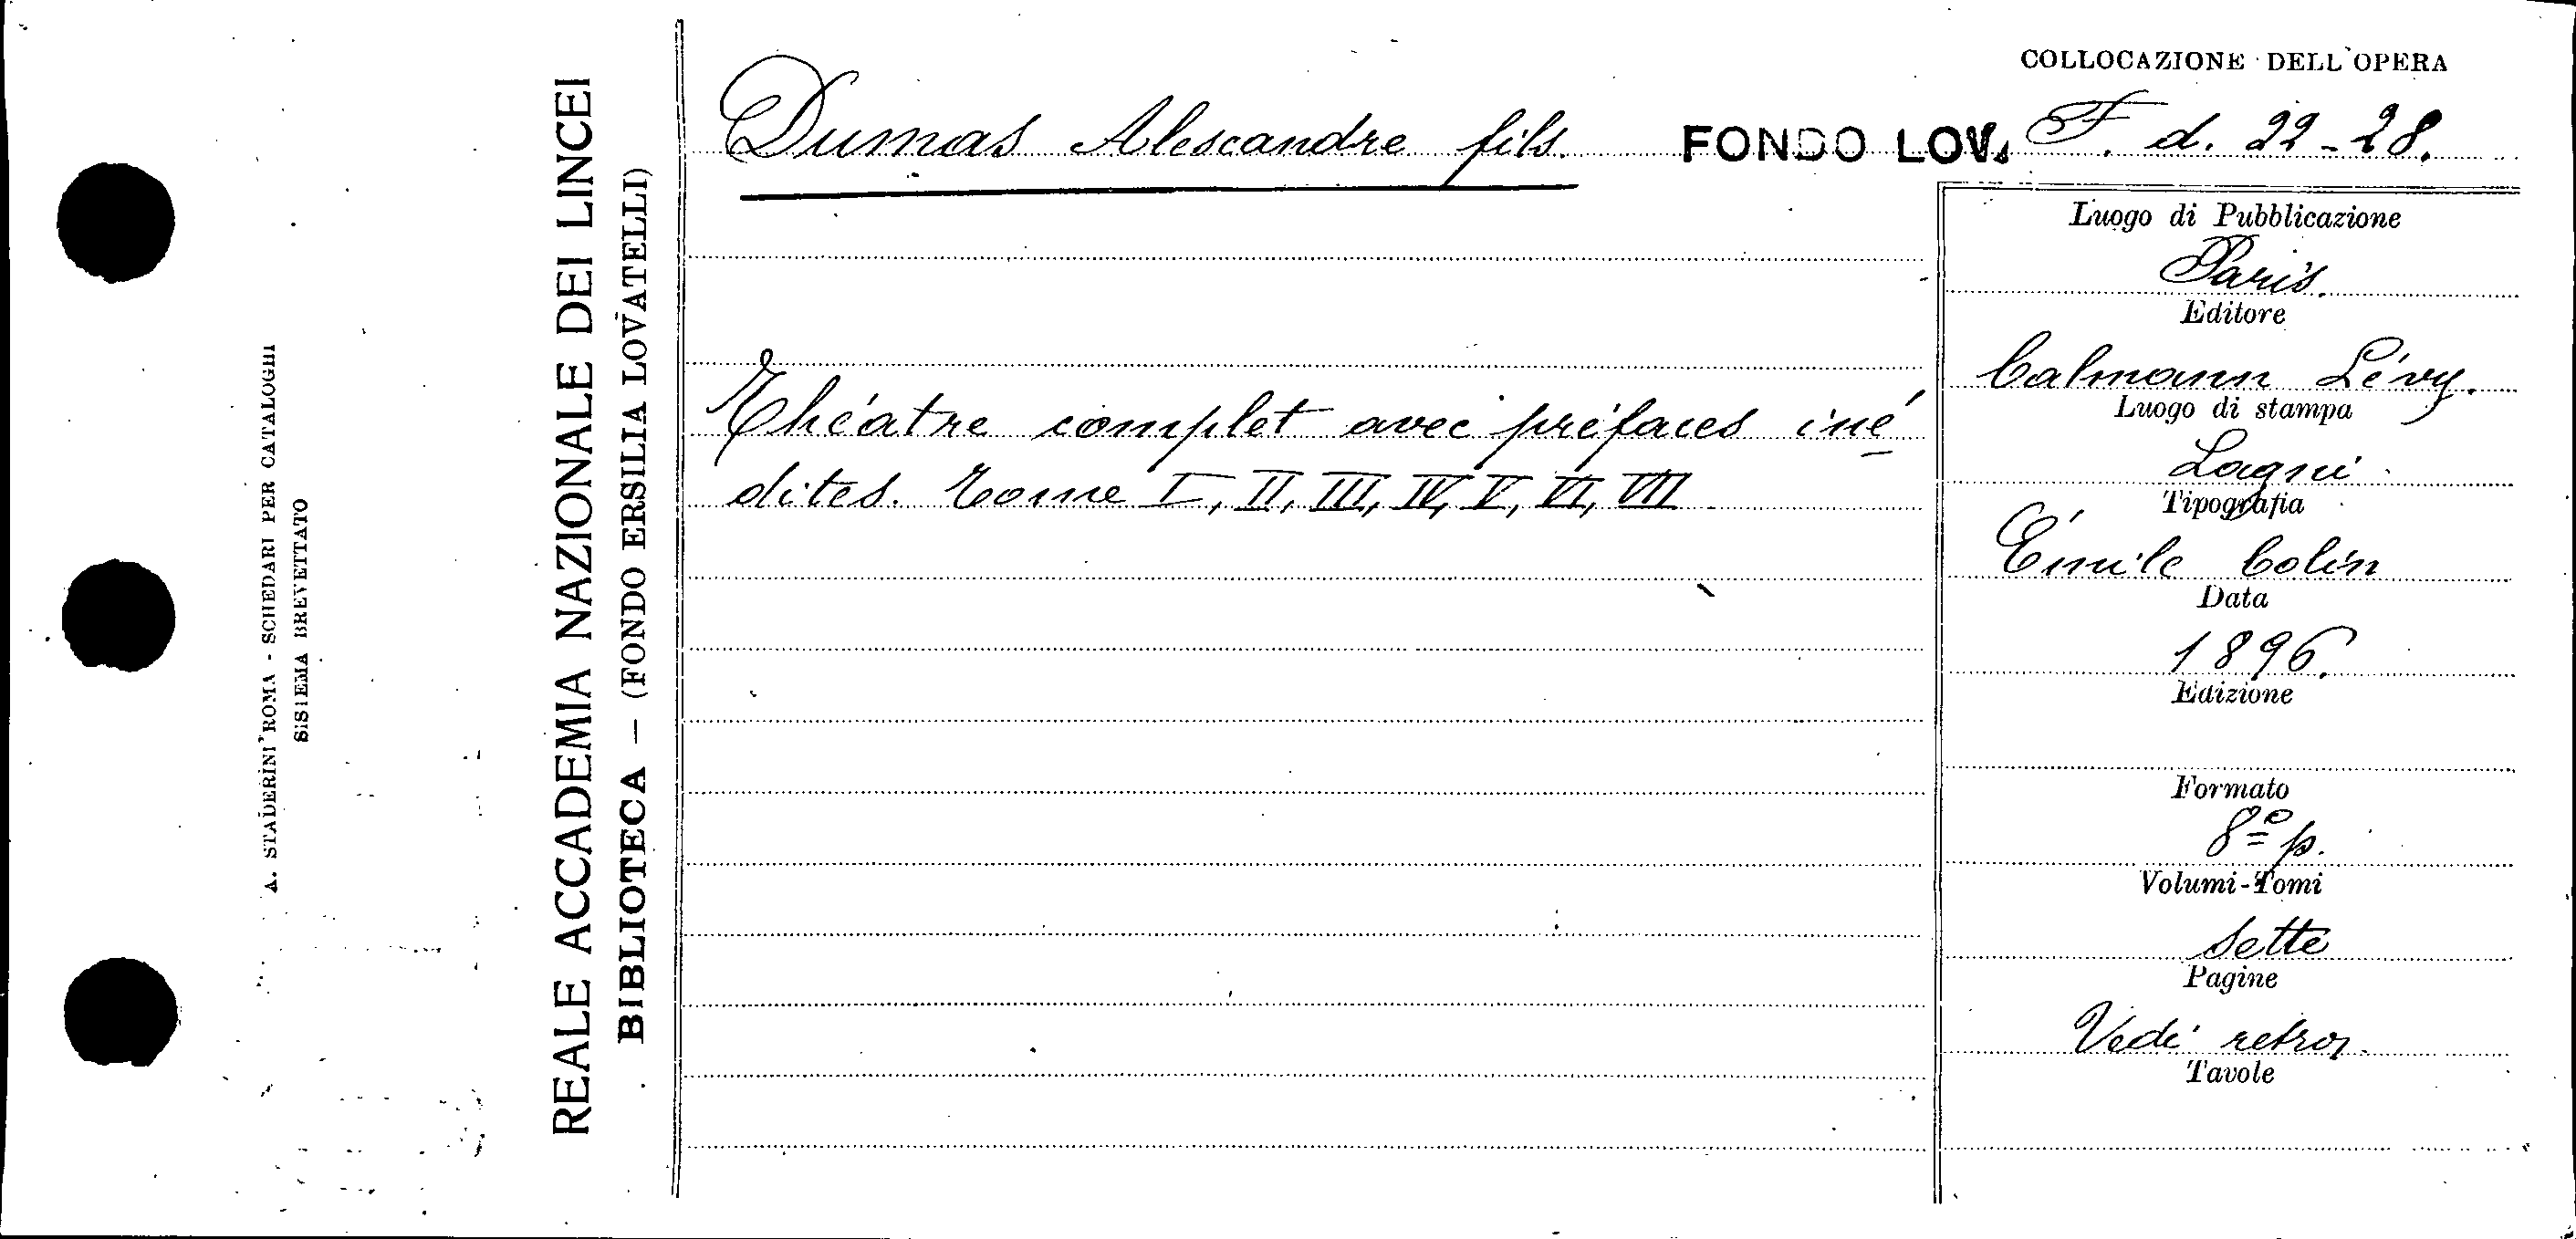 A. STADERINI ROMA - SCHEDARI PER CATALOGHI
SISTEMA BREVETTATO
REALE ACCADEMIA NAZIONALE DEI LINCEI
BIBLIOTECA — (FONDO ERSILIA LOVATELLI)
COLLOCAZIONE DELL'OPERA
Dumas Alescandre fils. FONDO LOV. F. d. 22-28.
Théatre complet avec préfaces iné
dites. Tome I, II, III, IV, V, VI, VII
Luogo di Pubblicazione
Paris.
Editore
Calmann Lévy.
Luogo di stampa
Lagni
Tipografia
Émile Colin
Data
1896.
Edizione
Formato
8º p.
Volumi-Tomi
Sette
Pagine
Vedi retro
Tavole